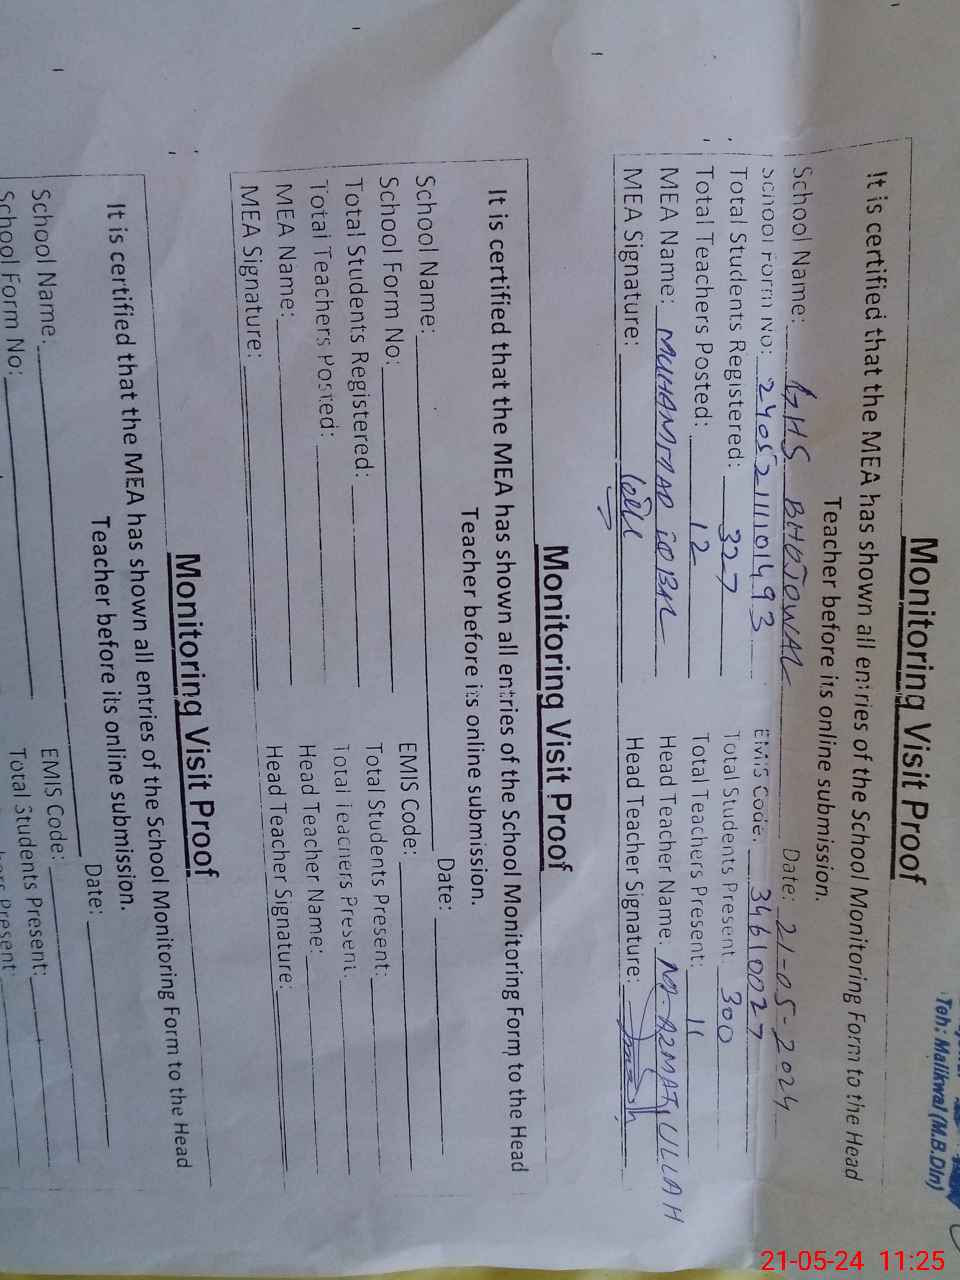 Teh: Malikwal (M.B.DIn)
Monitoring Visit Proof
It is certified that the MEA has shown all entries of the School Monitoring Form to the Head
Teacher before its online submission.
School Name: GHS BHOJOWAL Date: 21-05-2024
School Form No: 2405211110 1493 EMIS Code: 34610027
Total Students Registered: 327 Total Students Present: 300
Total Teachers Posted: 12 Total Teachers Present: 11
MEA Name: MUHAMMAD Head Teacher Name: ULLAH
MEA Signature: Head Teacher Signature:
Monitoring Visit Proof
It is certified that the MEA has shown all entries of the School Monitoring Form to the Head
Teacher before its online submission.
School Name: Date:
School Form No: EMIS Code:
Total Students Registered: Total Students Present:
Total Teachers Posted: Total Teachers Present:
MEA Name: Head Teacher Name:
MEA Signature: Head Teacher Signature:
Monitoring Visit Proof
It is certified that the MEA has shown all entries of the School Monitoring Form to the Head
Teacher before its online submission.
School Name: Date:
School Form No: EMIS Code:
Total Students Present:
Present:
21-05-24 11:25